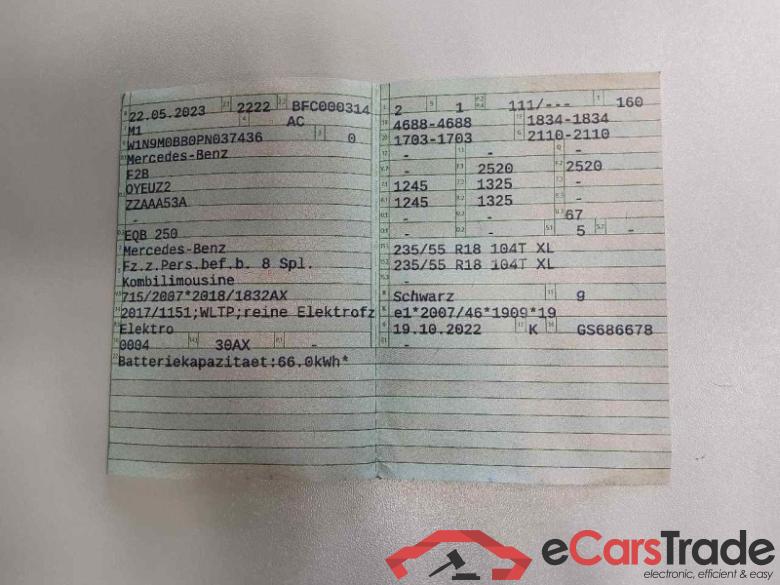 22.05.2023 2222 BFC000314
M1 AC
W1N9M0BB0PN037436 0
Mercedes-Benz
F2B
OYEUZ2
ZZAAA53A
-
EQB 250
Mercedes-Benz
Fz.z.Pers.bef.b. 8 Spl.
Kombilimousine
715/2007*2018/1832AX
2017/1151;WLTP;reine Elektrofz
Elektro
0004 30AX -
Batteriekapazitaet:66.0kWh*
2 1 111/--- 160
4688-4688 1834-1834
1703-1703 2110-2110
- - -
- 2520 2520
1245 1325 -
1245 1325 -
- - 67
- - 5 -
235/55 R18 104T XL
235/55 R18 104T XL
-
Schwarz 9
e1*2007/46*1909*19
19.10.2022 K GS686678
-
eCarsTrade
electronic, efficient & easy